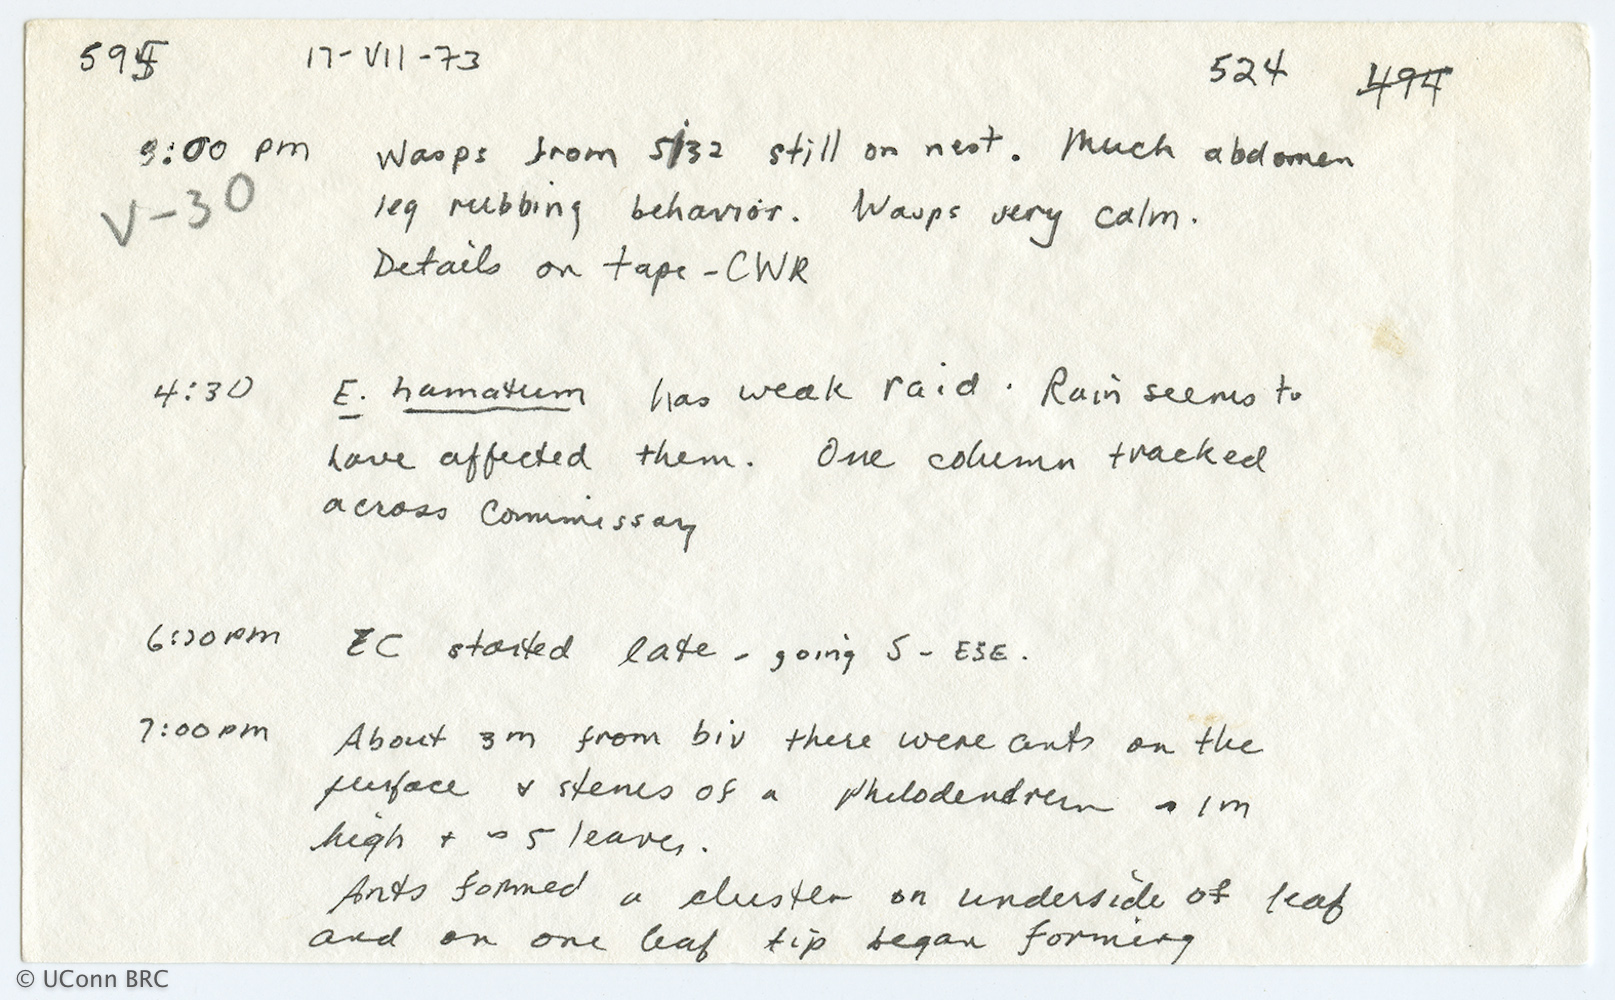 595 17-VII-73 524 494
3:00 pm Wasps from 5/32 still on nest. Much abdomen
V-30 leg rubbing behavior. Wasps very calm.
Details on tape - CWR
4:30 E. hamatum has weak raid. Rain seems to
have affected them. One column tracked
across Commissary
6:30 pm EC started late - going S - ESE.
7:00 pm About 3m from biv there were ants on the
surface & stems of a Philodendrum ~ 1m
high + ~ 5 leaves.
Ants formed a cluster on underside of leaf
and on one leaf tip began forming
© UConn BRC